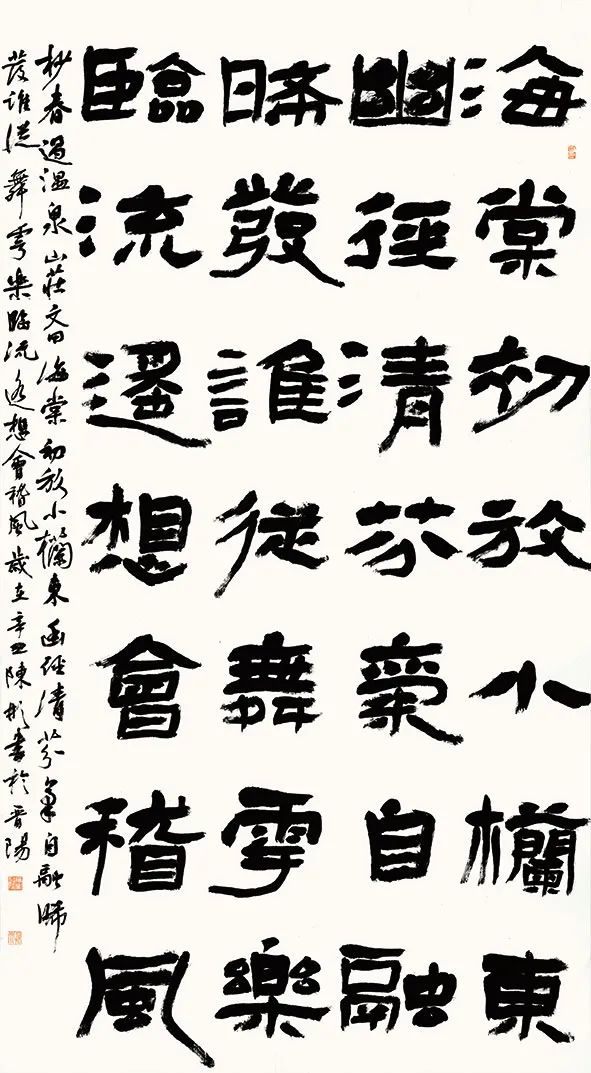 海棠初放小欄東
幽徑清芬氣自融
晞發誰從舞雩樂
臨流遥想會稽風
杪春過温泉山莊文曰海棠初放小欄東幽徑清芬氣自融晞
發誰從舞雩樂臨流遥想會稽風歲在辛丑陳彬書於晉陽